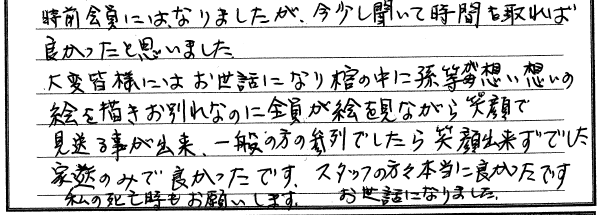 時前会員にはなりましたが、今少し聞いて時間を取れば
良かったと思いました。
大変皆様にはお世話になり棺の中に孫等が想い想いの
絵を描きお別れなのに全員が絵を見ながら笑顔で
見送る事が出来、一般の方の参列でしたら笑顔出来ずでした
家族のみで良かったです。スタッフの方々本当に良かったです
私の死亡時もお願いします。 お世話になりました。